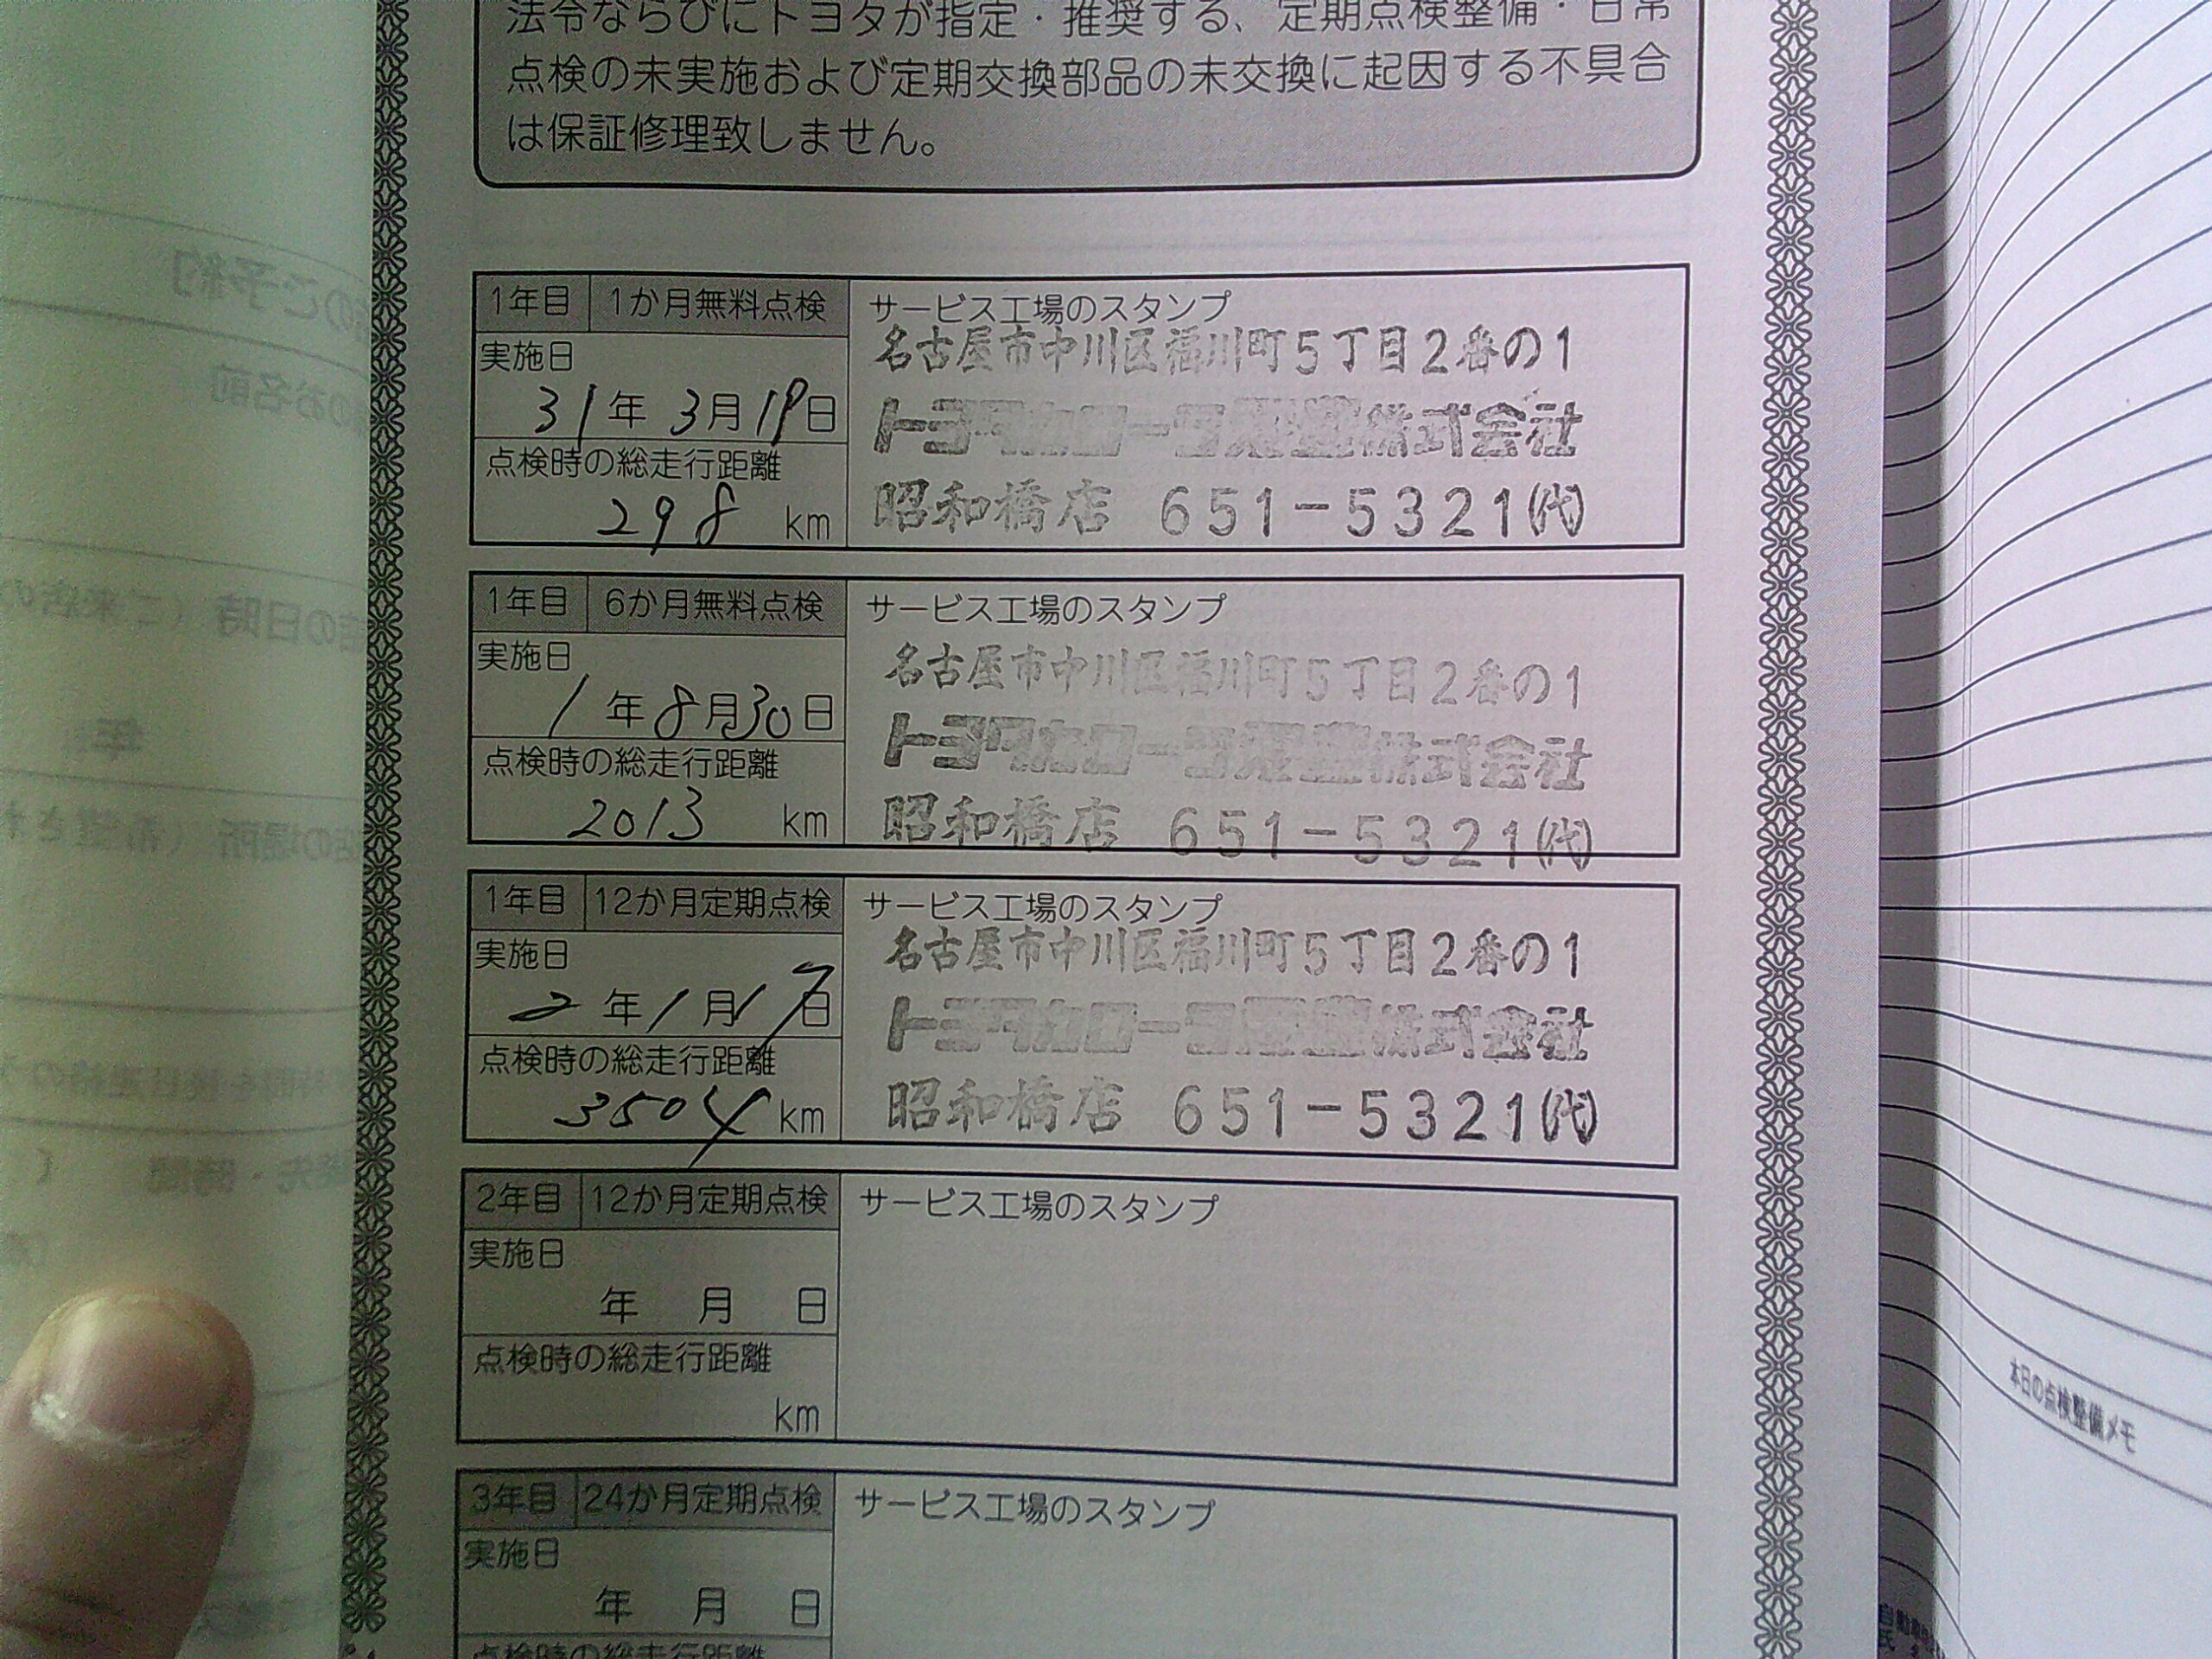 法令ならびにトヨタが指定・推奨する、定期点検整備・日常
点検の未実施および定期交換部品の未交換に起因する不具合
は保証修理致しません。
1年目 1か月無料点検 サービス工場のスタンプ
名古屋市中川区福川町5丁目2番の1
実施日
31年3月19日
トヨタカローラ愛豊株式会社
点検時の総走行距離
298 km
昭和橋店 651-5321(代)
1年目 6か月無料点検 サービス工場のスタンプ
実施日
名古屋市中川区福川町5丁目2番の1
1年8月30日
トヨタカローラ愛豊株式会社
点検時の総走行距離
2013 km
昭和橋店 651-5321(代)
1年目 12か月定期点検 サービス工場のスタンプ
名古屋市中川区福川町5丁目2番の1
実施日
2年1月17日
トヨタカローラ愛豊株式会社
点検時の総走行距離
3504 km
昭和橋店 651-5321(代)
2年目 12か月定期点検 サービス工場のスタンプ
実施日
年 月 日
点検時の総走行距離
km
3年目 24か月定期点検 サービス工場のスタンプ
実施日
年 月 日
点検時の総走行距離
本日の点検整備メモ